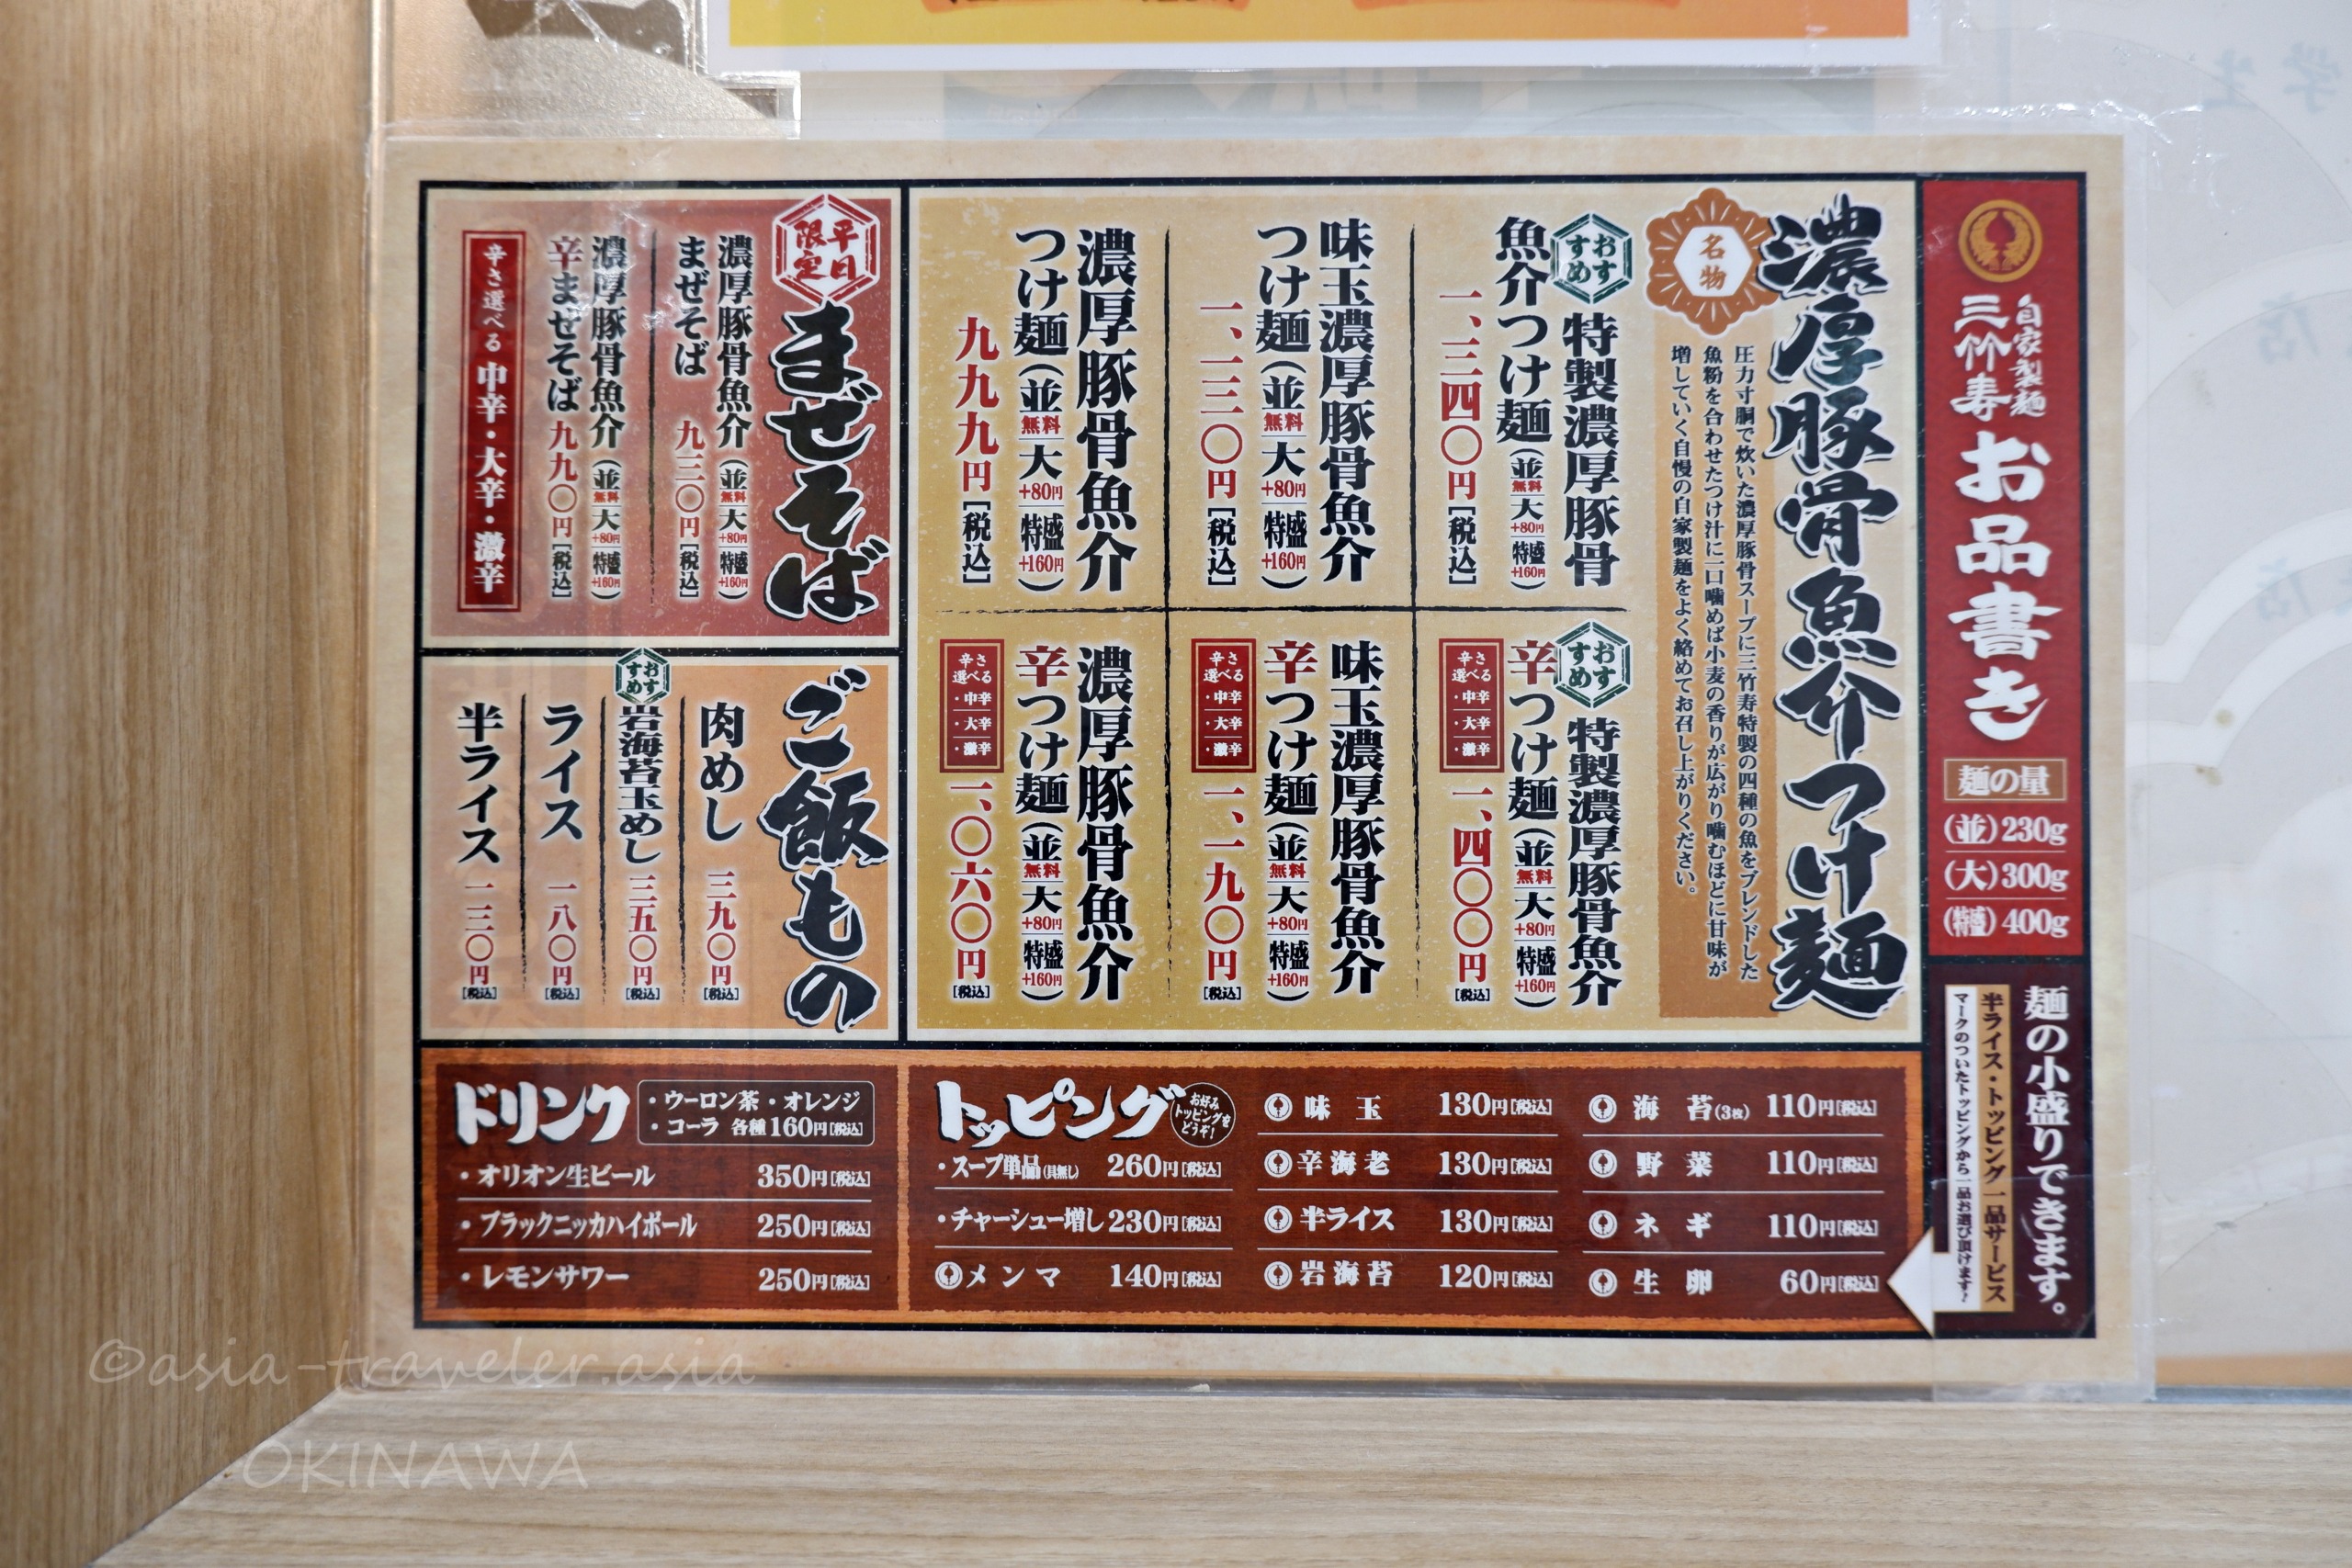 自家製麺
三竹寿
お品書き
麺の量
(並)230g
(大)300g
(特盛)400g
麺の小盛りできます。
半ライス・トッピング一品サービス
マークのついたトッピングから一品お選び頂けます！
濃厚豚骨魚介つけ麺
名物
圧力寸胴で炊いた濃厚豚骨スープに三竹寿特製の四種の魚をブレンドした
魚粉を合わせたつけ汁に一口噛めば小麦の香りが広がり噛むほどに甘味が
増していく自慢の自家製麺をよく絡めてお召し上がりください。
おすすめ
特製濃厚豚骨
魚介つけ麺(並無料大+80円特盛+160円)
一、三四〇円[税込]
味玉濃厚豚骨魚介
つけ麺(並無料大+80円特盛+160円)
一、一三〇円[税込]
濃厚豚骨魚介
つけ麺(並無料大+80円特盛+160円)
九九九円[税込]
おすすめ
特製濃厚豚骨魚介
辛つけ麺(並無料大+80円特盛+160円)
辛さ
選べる
・中辛
・大辛
・激辛
一、四〇〇円[税込]
味玉濃厚豚骨魚介
辛つけ麺(並無料大+80円特盛+160円)
辛さ
選べる
・中辛
・大辛
・激辛
一、一九〇円[税込]
濃厚豚骨魚介
辛つけ麺(並無料大+80円特盛+160円)
辛さ
選べる
・中辛
・大辛
・激辛
一、〇六〇円[税込]
平日限定
まぜそば
濃厚豚骨魚介(並無料大+80円特盛+160円)
まぜそば 九三〇円[税込]
濃厚豚骨魚介(並無料大+80円特盛+160円)
辛まぜそば 九九〇円[税込]
辛さ選べる 中辛・大辛・激辛
ご飯もの
肉めし 三九〇円[税込]
おすすめ
岩海苔玉めし 三五〇円[税込]
ライス 一八〇円[税込]
半ライス 一三〇円[税込]
ドリンク
・ウーロン茶・オレンジ
・コーラ 各種160円[税込]
・オリオン生ビール 350円[税込]
・ブラックニッカハイボール 250円[税込]
・レモンサワー 250円[税込]
トッピング
お好み
トッピングを
どうぞ！
・スープ単品(具無し) 260円[税込]
・チャーシュー増し 230円[税込]
メンマ 140円[税込]
味玉 130円[税込]
辛海老 130円[税込]
半ライス 130円[税込]
岩海苔 120円[税込]
海苔(3枚) 110円[税込]
野菜 110円[税込]
ネギ 110円[税込]
生卵 60円[税込]
©asia-traveler.asia
OKINAWA